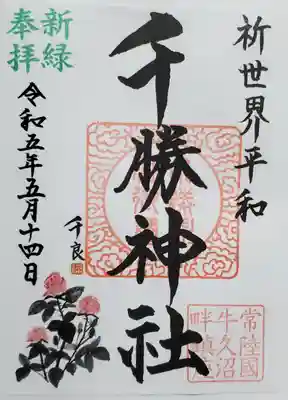 祈世界平和
千勝神社
新緑
奉拝
令和五年五月十四日
千良
常陸國
牛久沼
畔